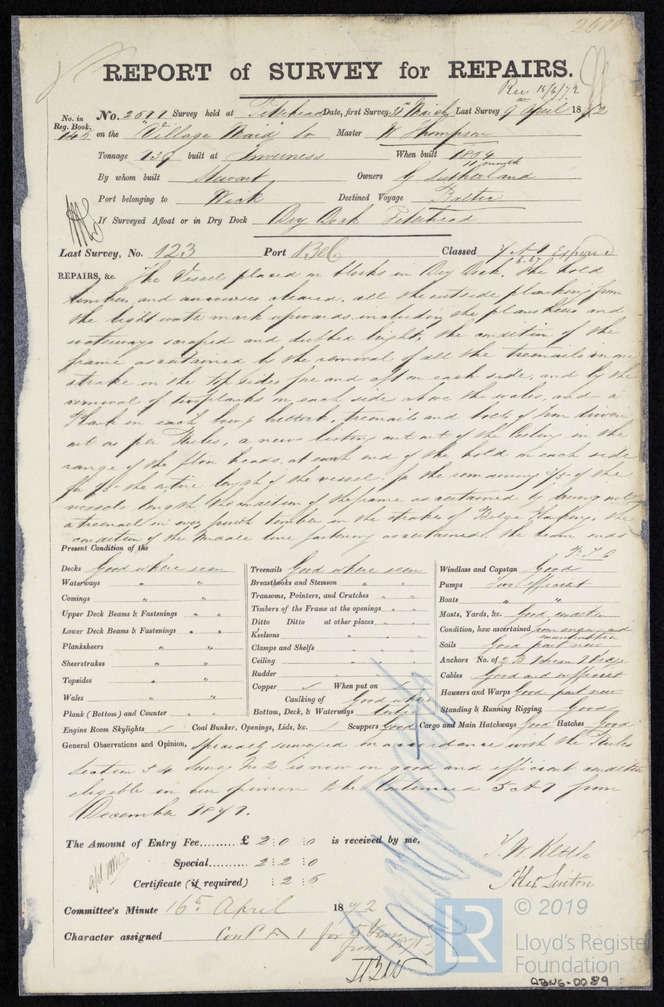 REPORT of SURVEY for REPAIRS.
Rec 15/4/72
No. in Reg. Book. 
No. 2611 Survey held at Peterhead Date, first Survey Last Survey 9 April 1872
on the "Village Maid" Master W Thompson
Tonnage 139 built at Inverness When built 1859
By whom built Stewart Owners G Sutherland
Port belonging to Wick Destined Voyage Baltic
If Surveyed Afloat or in Dry Dock Dry Dock Peterhead
Last Survey, No. 123 Port Bel Classed Expired
REPAIRS, &c. The Vessel placed on blocks in Dry Dock, the hold
timber and cleared, all the outside planking from
the light water mark upwards including the plansheers and
waterways scraped and dubbed bright, the condition of the
frame ascertained by the removal of all the treenails in one
strake in the topsides fore and aft on each side, and by the
removal of planks on each side above the wales, and a
Plank in each bow & buttock, treenails and bolts of iron driven
out as per Rules, a new cut out of the Ceiling in the
range of the floor heads, at each end of the hold on each side
for the entire length of the vessel, for the remaining 4/5 of the
vessels length the condition of the frame ascertained by driving out
a treenail in every fourth timber in the strake of Bilge Planking, the
condition of the fastening ascertained. The beam ends
P.T.O
Present Condition of the
Decks Good where seen
Waterways " "
Comings " "
Upper Deck Beams & Fastenings " "
Lower Deck Beams & Fastenings " "
Plansheers " "
Sheerstrakes " "
Topsides " "
Wales " "
Plank (Bottom) and Counter " "
Treenails Good where seen
Breasthooks and Stemson " "
Transoms, Pointers, and Crutches " "
Timbers of the Frame at the openings " "
Ditto Ditto at other places " "
Keelsons
Clamps and Shelfs
Ceiling
Rudder
Copper When put on
Caulking of Good
Bottom, Deck, & Waterways
Windlass and Capstan Good
Pumps efficient
Boats " "
Masts, Yards, &c. Good condition
Condition, how ascertained from enquiry and examination
Sails Good part new
Anchors No. of
Cables Good and sufficient
Hawsers and Warps Good part new
Standing & Running Rigging Good
Engine Room Skylights Coal Bunker, Openings, Lids, &c. Scuppers Good Cargo and Main Hatchways Good Hatches Good
General Observations and Opinion, Specially surveyed in accordance with the Rules
Section 54 No 2 is now in good and efficient condition
eligible in our opinion to be Continued 5 A 1 from
December 1871.
The Amount of Entry Fee......... £ 2 : 0 : 0 is received by me,
Special......... 2 : 2 : 0
Certificate (if required) : 2 : 6
Committee's Minute 16th April 1872
Character assigned Contd A 1 for 5 Years
© 2019
LR
Lloyd's Register
Foundation